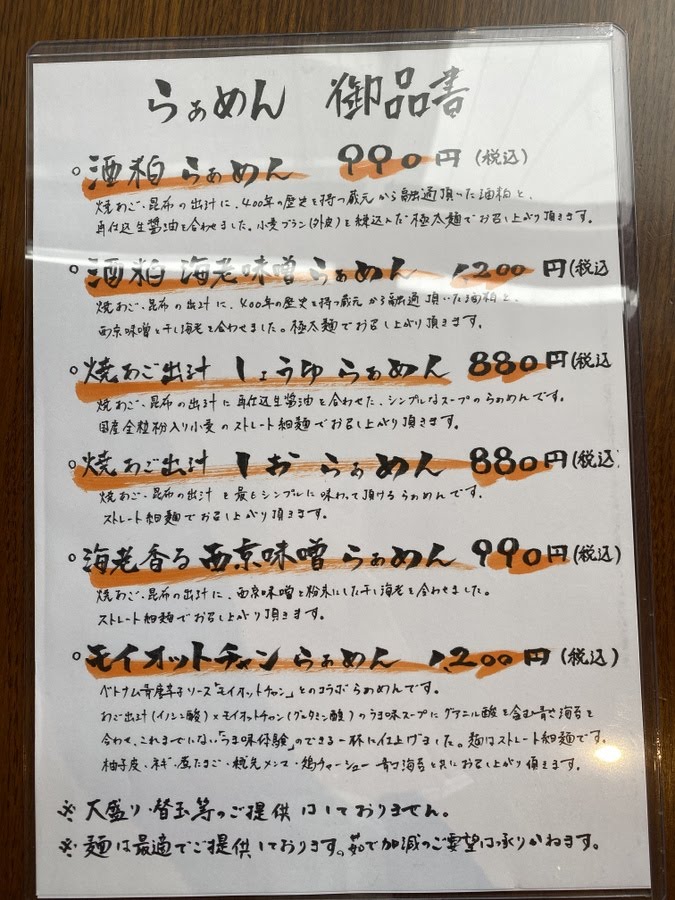 らぁめん 御品書
○酒粕 らぁめん 990円(税込)
焼あご・昆布の出汁に、400年の歴史を持つ蔵元から融通頂いた酒粕と、
再仕込生醤油を合わせました。小麦ブラン(外皮)を練込んだ極太麺でお召し上がり頂きます。
○酒粕 海老味噌 らぁめん 1,200円(税込
焼あご・昆布の出汁に、400年の歴史を持つ蔵元から融通頂いた酒粕と、
西京味噌と干し海老を合わせました。極太麺でお召し上がり頂きます。
○焼あご出汁 しょうゆ らぁめん 880円(税込
焼あご・昆布の出汁に再仕込生醤油を合わせた、シンプルなスープのらぁめんです。
国産全粒粉入り小麦のストレート細麺でお召し上がり頂きます。
○焼あご出汁 しお らぁめん 880円(税込
焼あご・昆布の出汁を最もシンプルに味わって頂けるらぁめんです。
ストレート細麺でお召し上がり頂きます。
○海老香る 西京味噌 らぁめん 990円(税込)
焼あご・昆布の出汁に、西京味噌と粉末にした干し海老を合わせました。
ストレート細麺でお召し上がり頂きます。
○モイオットチャン らぁめん 1,200円(税込)
ベトナム青唐辛子ソース「モイオットチャン」とのコラボらぁめんです。
あご出汁(イノシン酸)×モイオットチャン(グルタミン酸)のうま味スープにグアニル酸を含む青さ海苔を
合わせ、これまでにない「うま味体験」のできる一杯に仕上げました。麺はストレート細麺です。
柚子皮・ネギ・煮たまご・穂先メンマ・鶏チャーシュー・青さ海苔と共にお召し上がり頂きます。
※大盛り・替玉等のご提供はしておりません。
※麺は最適でご提供しております。茹で加減のご要望は承りかねます。